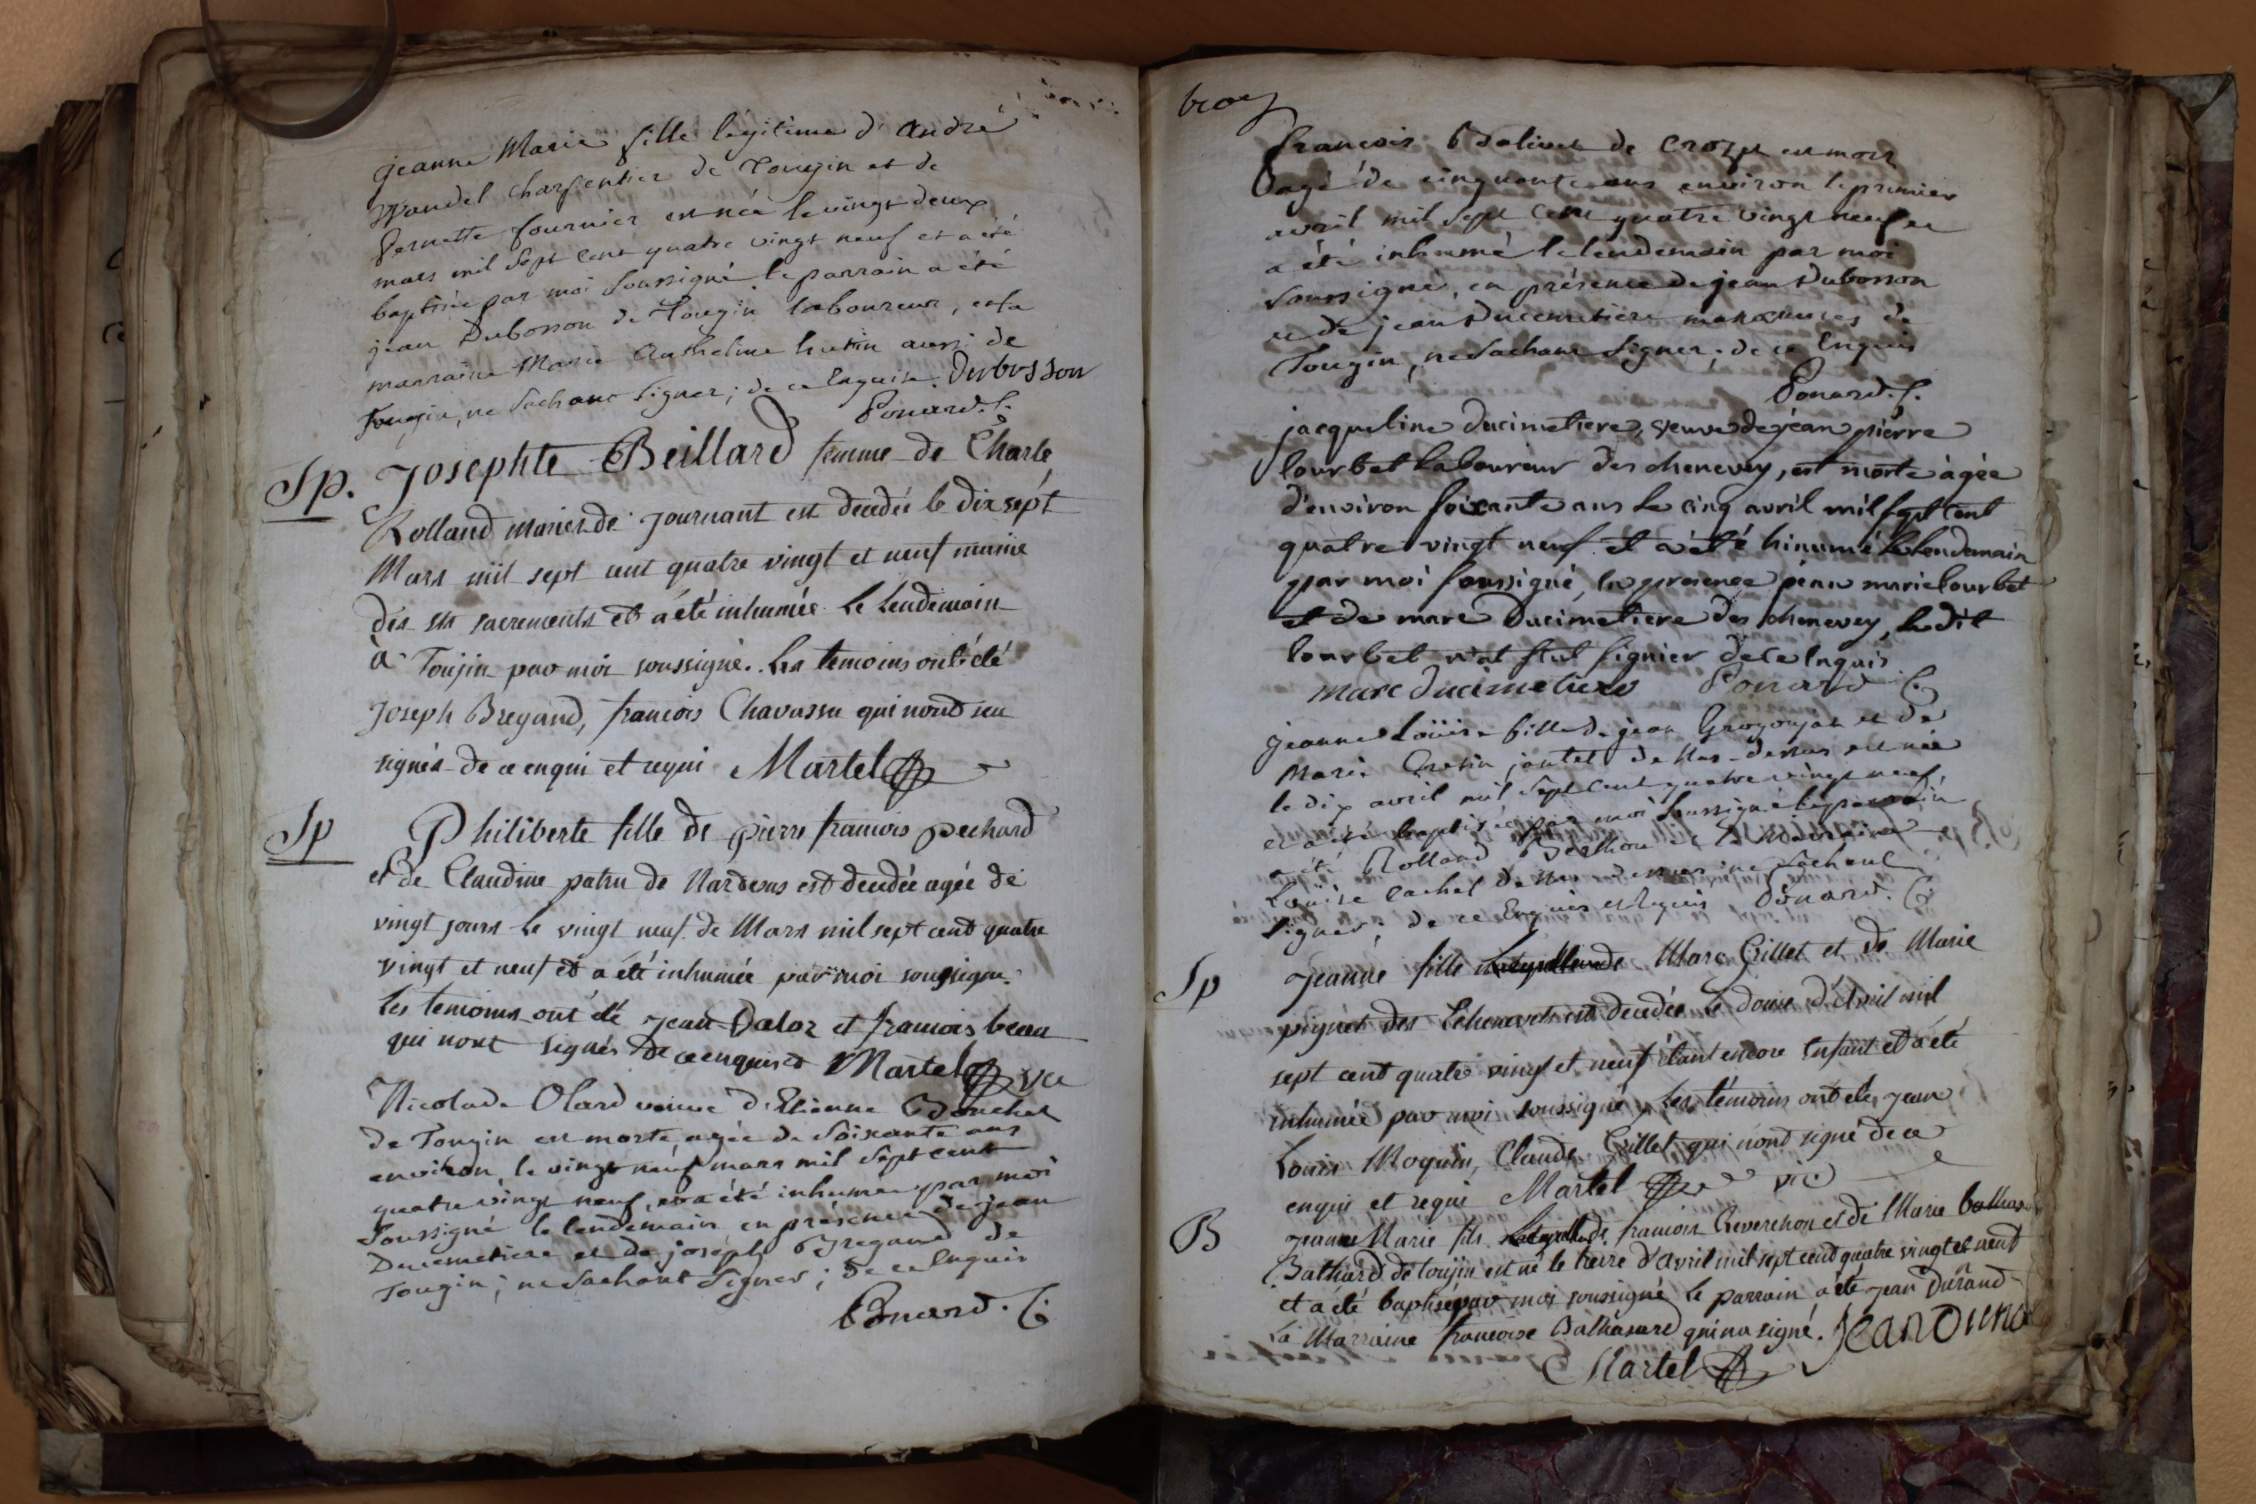 jeanne Marie fille légitime d'André
Wandel charpentier de Tougin et de
Pernette fournier est née le vingt deux
mars mil sept cent quatre vingt neuf et a été
baptisée par moi soussigné le parrain a été
jean Dubosson de Tougin laboureur, et la
marraine Marie Anthelme hutin aussi de
Tougin, ne sachant signer; de ce Enquise. Dubosson
Ponard. C.
Sp. Josephte Beillard femme de Charle
Rolland mariés de journant est decedée le dix sept
Mars mil sept cent quatre vingt et neuf munie
des sts sacrements et a été inhumée le lendemain
à Toujin par moi soussigné. Les temoins ont été
Joseph Bregand, francois Chavassu qui nont seu
signés de ce enqui et requi Martel
Sp Philiberte fille de pierre francois pechard
et de Claudine patru de Nardevus est decedée agée de
vingt jours le vingt neuf de Mars mil sept cent quatre
vingt et neuf et a été inhumée par moi soussigné.
Les temoins ont été jean Daloz et francois beau
qui nont signés de ce enquis Martel vic
Nicolade Olard veuve d'Etienne Bouchet
de Tougin est morte agée de soixante ans
environ, le vingt neuf mars mil sept cent
quatre vingt neuf, et a été inhumée par moi
soussigné le lendemain en présence de jean
Ducimetiere et de joseph Bregand de
Tougin; ne sachant signer; de ce Enquis
Ponard. C.
troy
francois de Crozet est mort
agé de cinquante ans environ le premier
avril mil sept cent quatre vingt neuf et
a été inhumé le lendemain par moi
soussigné, en présence de jean Dubosson
et de jean Ducimetiere de
Tougin, ne sachant signer; de ce Enquis
Ponard. C.
jacqueline ducimetiere, veuve de jean pierre
lourbet laboureur des chenevey, est morte agée
d'environ soixante ans le cinq avril mil sept cent
quatre vingt neuf et a été hinumé le lendemain
par moi soussigné, en presence marie lourbet
et de marc ducimetiere des chenevey, le dit
lourbet n'at seut signier de ce enquis
marc ducimetiere Ponard C.
jeanne Loüise fille de jean Grozgojat et de
Marie Crétin jontel de Nas-dessus est née
le dix avril mil sept cent quatre vingt neuf,
et a été baptisée par moi soussigné le parrain
a été Rolland Berthou et la Marraine
Loüise Cachet de Nas dessus ne sachant
signer; de ce Enquis et Requis Ponard. C.
Sp Jeanne fille Marc Gillet et de Marie
pignet des Echenevets est decedée le douze d'avril mil
sept cent quatre vingt et neuf étant encore enfant et a été
inhumée par moi soussigné, les témoins ont été jean
Louis Moquin, Claude Gillet qui nont signé de ce
enqui et requi Martel vic
B Jeanne Marie fils francois Reverchon et de Marie
Bathard de toujin est né le treize d'avril mil sept cent quatre vingt et neuf
et a été baptisé par moi soussigné le parrain a été jean Durand
La Marraine francoise Balthasard qui na signé. Jean Durand
Martel